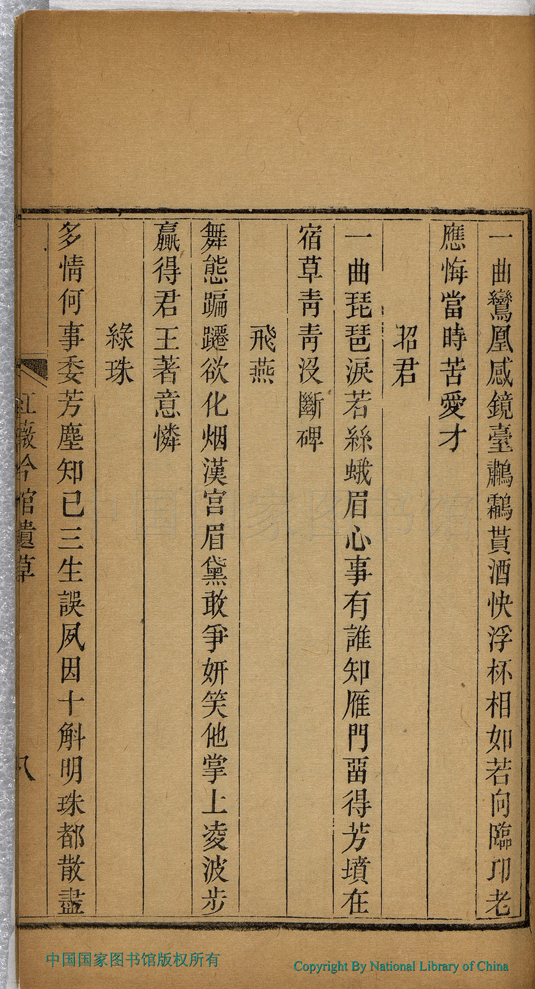 一曲鸞凰感鏡臺鷫鸘貰酒快浮杯相如若向臨卭老
應悔當時苦愛才
昭君
一曲琵琶淚若絲蛾眉心事有誰知雁門畱得芳墳在
宿草靑靑沒斷碑
飛燕
舞態蹁躚欲化烟漢宮眉黛敢爭妍笑他掌上凌波步
贏得君王著意憐
綠珠
多情何事委芳塵知己三生誤夙因十斛明珠都散盡
紅薇吟館遺草
八
中国国家图书馆版权所有
Copyright By National Library of China